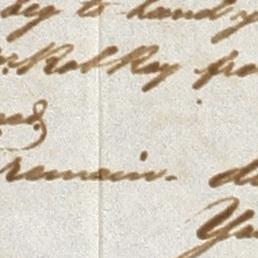 beg to hand y
Rob Roy fro
remain. d
You